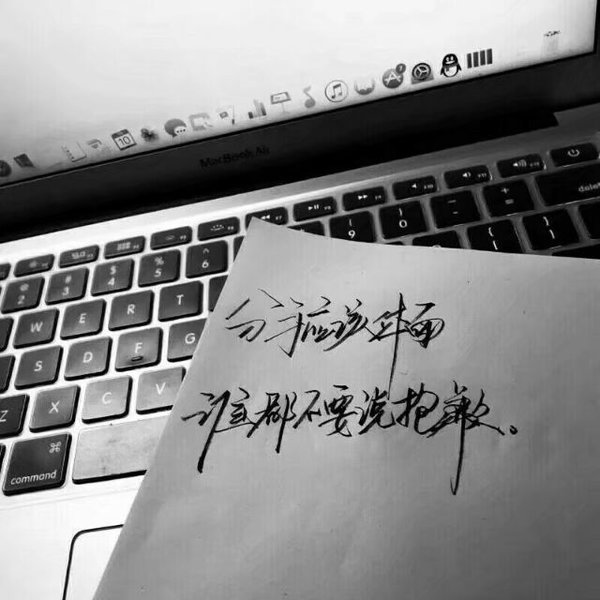 10
MacBook Air
delete
@ 2
# 3
$ 4
% 5
^ 6
( 9
) 0
W E R T
S D F G
Z X C V
command
分手应该体面
谁都不要说抱歉。